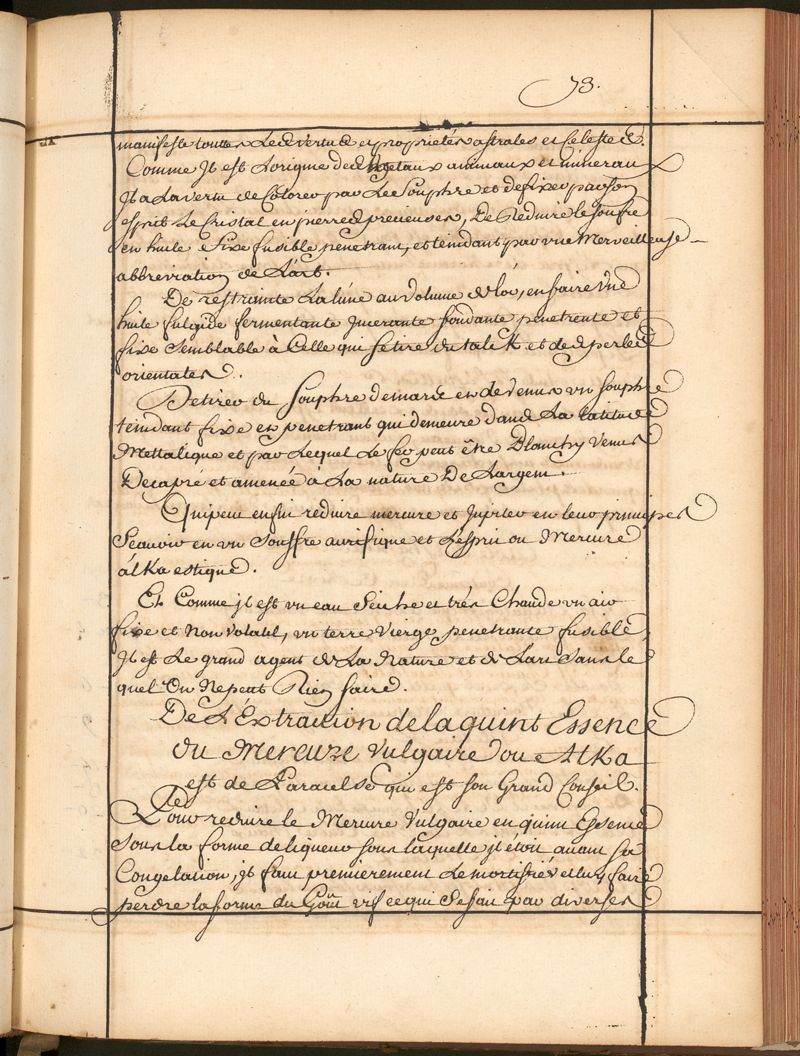 73.
manifeste toutes Les vertus et proprietés astrales et Celestes.
Comme Jl est Lorigine des vegetaux animaux et mineraux
Jl a La vertu de Colorer par Le Souphre et de fixer par son
esprit Le Cristal en pierres precieuses, De Reduire le soufre
en huile fixe fusible penetrant, et teindant par vne Merveilleuse
abbreviation de L'art.
De restrainte La lune au volume de lor, en faire vne
huile fulgide fermentante Jncerante fondante penetrente et
fixe Semblable à Celle qui se tire du talck et des perles
orientales.
Detirer du Souphre de mars et de venus vn souphre
teindant fixe et penetrant qui demeure dans La latitude
Mettalique et par Lequel Le fer peut être Blanchy Venus
Decapré et amenée à La nature De Largent.
Qui peut enfin reduire mercure et Jupiter en leur principes
Sçauoir en vn Souffre aurifique et L'esprit ou Mercure
alKaestique.
Et Comme jl est vn eau Seiche et trés Chaude vn air
fixe et Non volatil, vn terre Vierge penetrante fusible,
Jl est Le grand agent de La Nature et de Lart Sans le
quel On Nepeut Rien faire.
De L'Extraction de la quint Essence
du Mercure Vulgaire ou AlKa
est de Paracelse qui est son Grand Conseil.
Pour reduire le Mercure Vulgaire en quint Essence
Sous la forme de liqueur sous laquelle jl étoit auant sa
Congelation, jl faut premierement Le mortifiér et luy faire
perdre la forme du vif ce qui Se fait par diverses